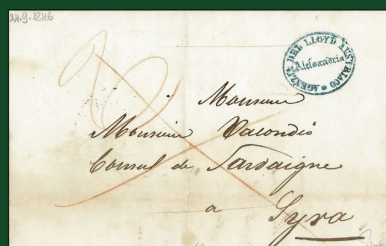 22.9.1846
AGENZIA DEL LLOYD AUSTRIACO
Alessandria
Monsieur
Monsieur Vacondio
Consul de Sardaigne
a
Syra